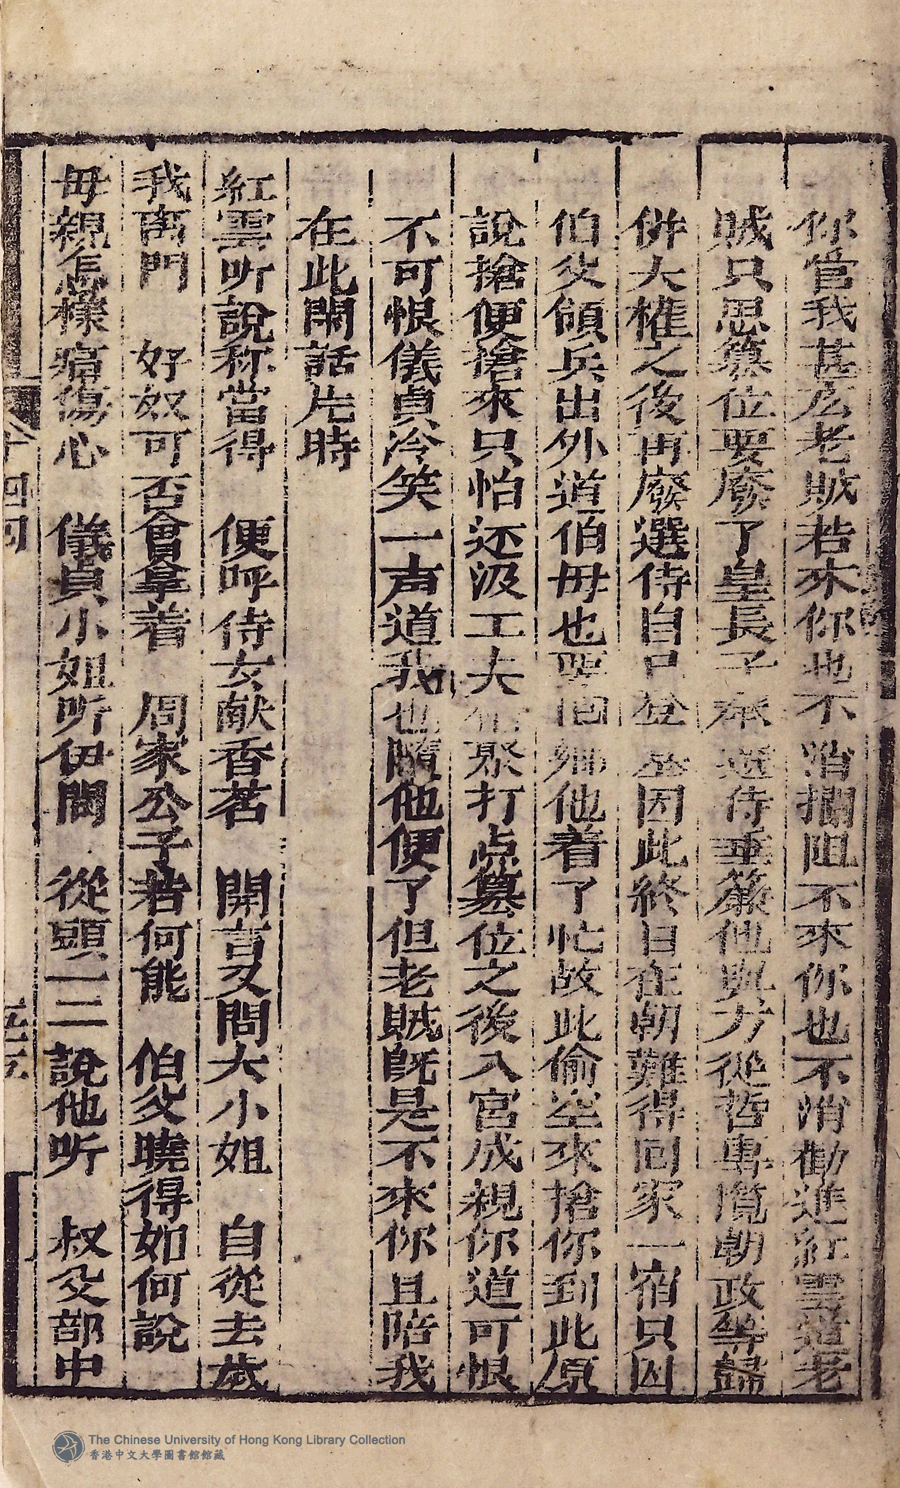 你管我甚庅老賊若來你也不消攔阻不來你也不消勸進紅雲道老
賊只思篡位要廢了皇長子奉選侍垂簾他與方從哲專攬朝政等歸
併大權之後再廢選侍自己登基因此終日在朝難得回家一宿只因
伯父領兵出外道伯母也要回鄉他着了忙故此偷空來搶你到此原
說搶便搶來只怕还汲工夫但聚打点篡位之後入宮成親你道可恨
不可恨儀貞冷笑一声道我也隨他便了但老賊既是不來你且陪我
在此閑話片時
紅雲听說称當得　便呼侍女献香茗　開言又問大小姐　自從去歲
我离門　好奴可否會拿着　周家公子若何能　伯父曉得如何說
母親怎樣痛傷心　儀貞小姐听伊問　從頭一二說他听　叔父部中
十四回
五五
The Chinese University of Hong Kong Library Collection
香港中文大學圖書館館藏